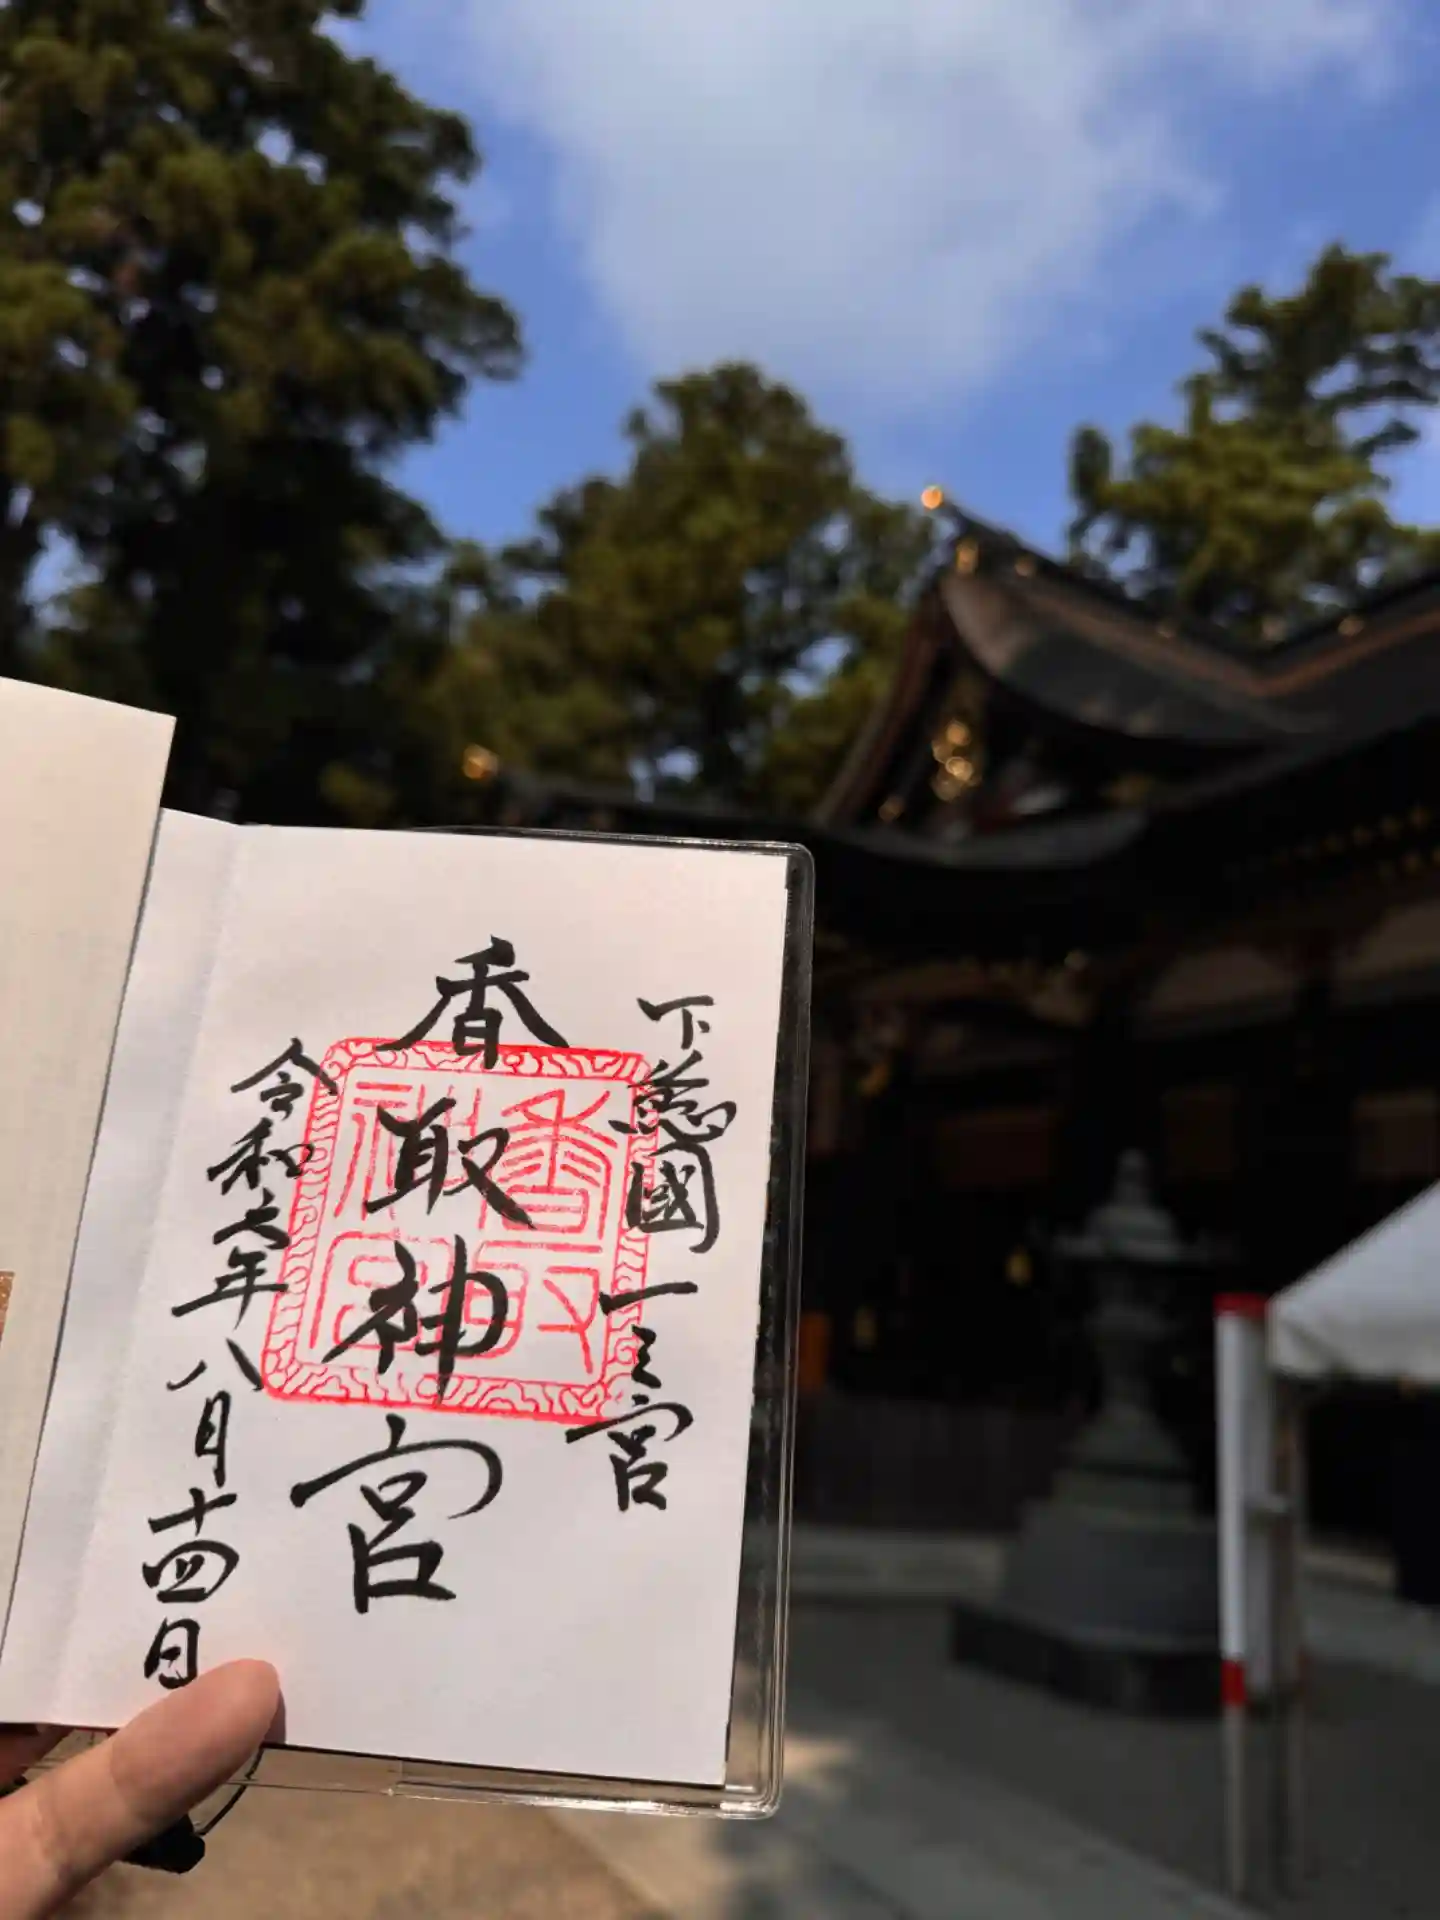 下總國一之宮
香取神宮
香取神宮
令和六年八月十四日